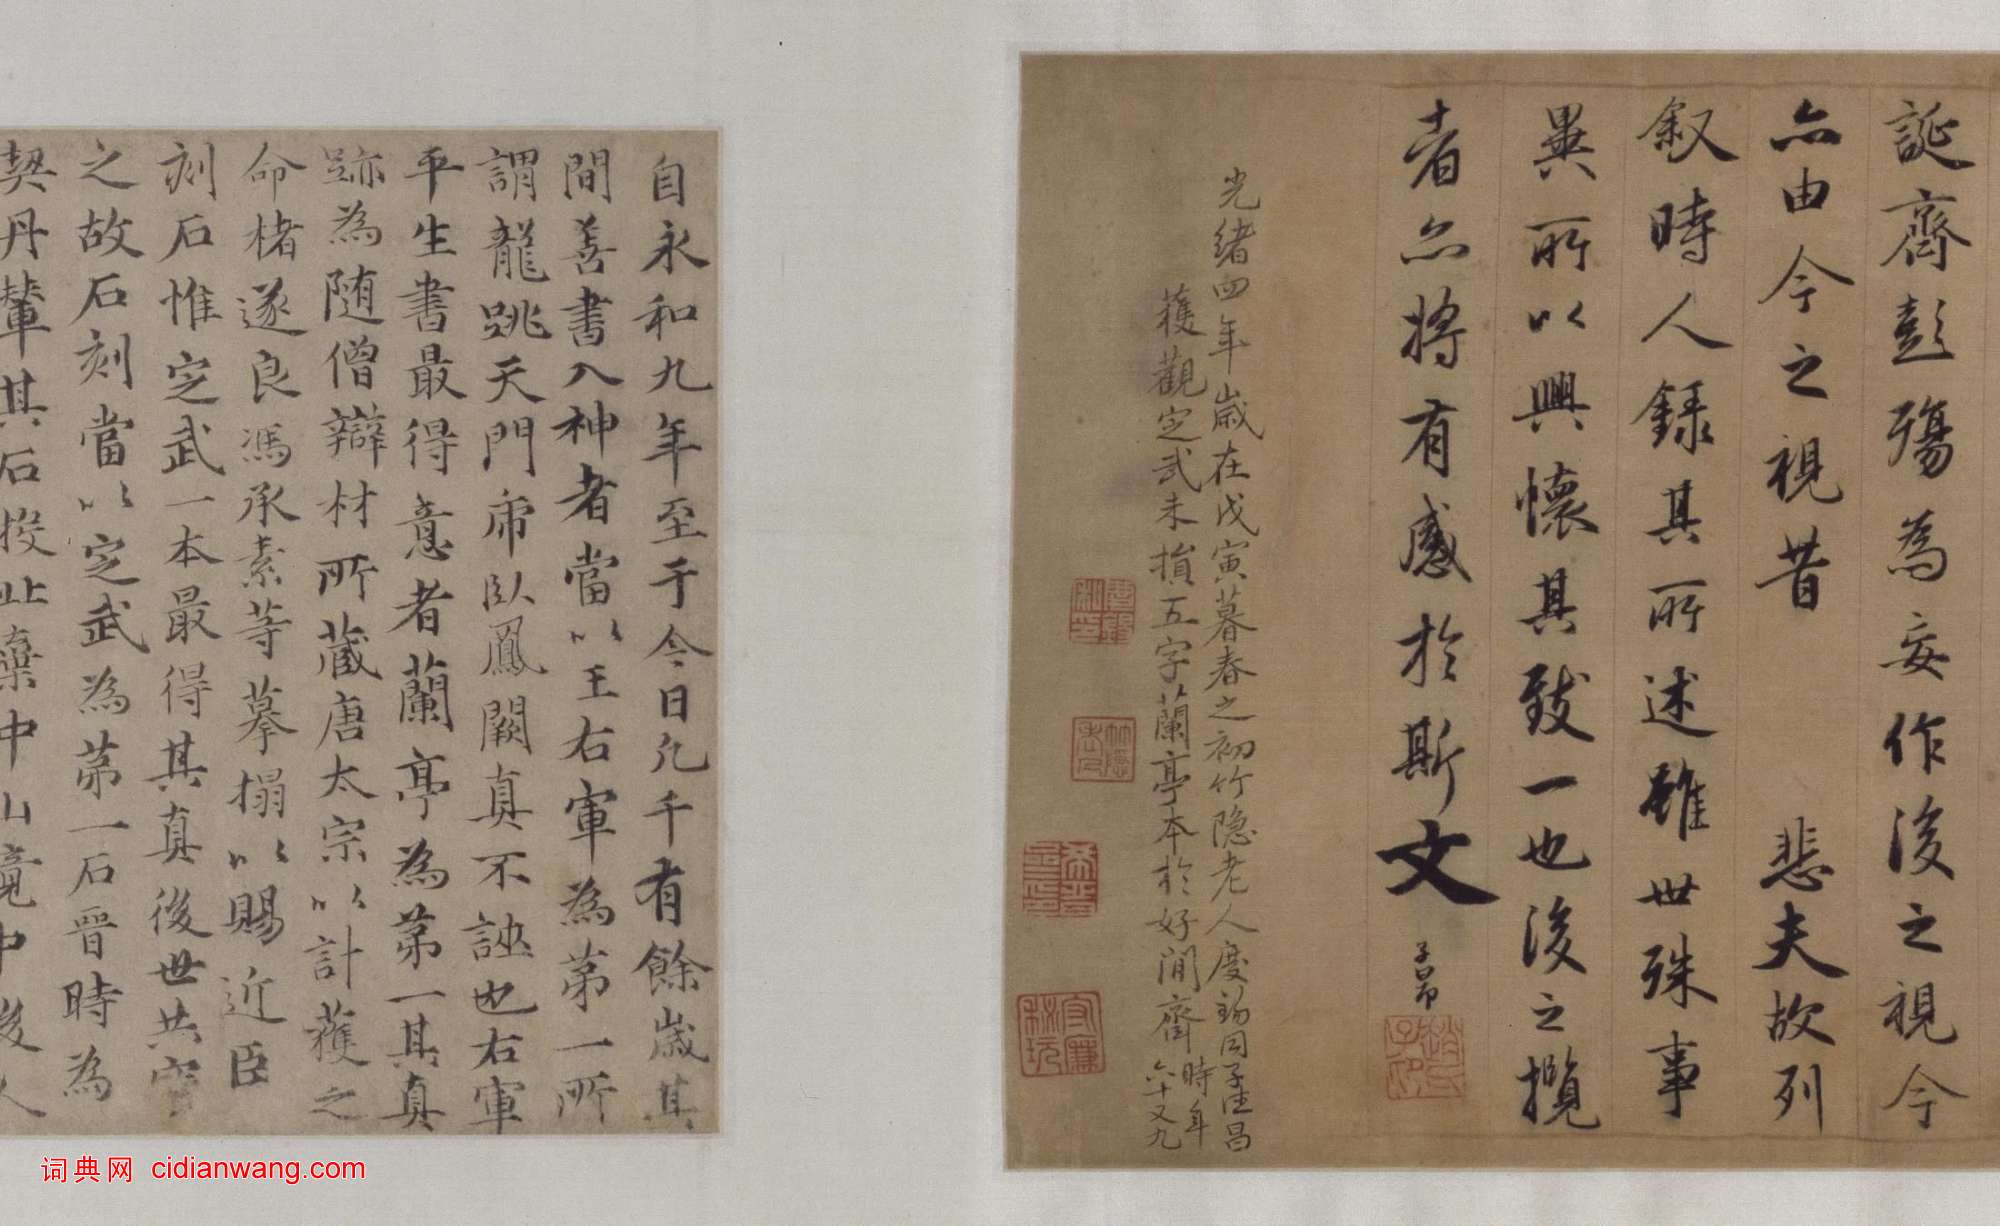 誕齊彭殤為妄作後之視今
亦由今之視昔 悲夫故列
叙時人錄其所述雖世殊事
異所以興懷其致一也後之攬
者亦將有感於斯文
子昂
光緒四年歲在戊寅暮春之初竹隐老人度錫同子德昌
獲觀定武未損五字蘭亭本於好閒齋
時年
六十又九
自永和九年至于今日凡千有餘歲其
間善書入神者當以王右軍為第一所
謂龍跳天門虎臥鳳闕真不誣也右軍
平生書最得意者蘭亭為第一其真
跡為随僧辯材所藏唐太宗以計獲之
命楮遂良馮承素等摹搨以賜近臣
刻石惟定武一本最得其真後世共寶
之故石刻當以定武為第一石晉時為
契丹輦其石投止棄中山竟中後人
词典网 cidianwang.com